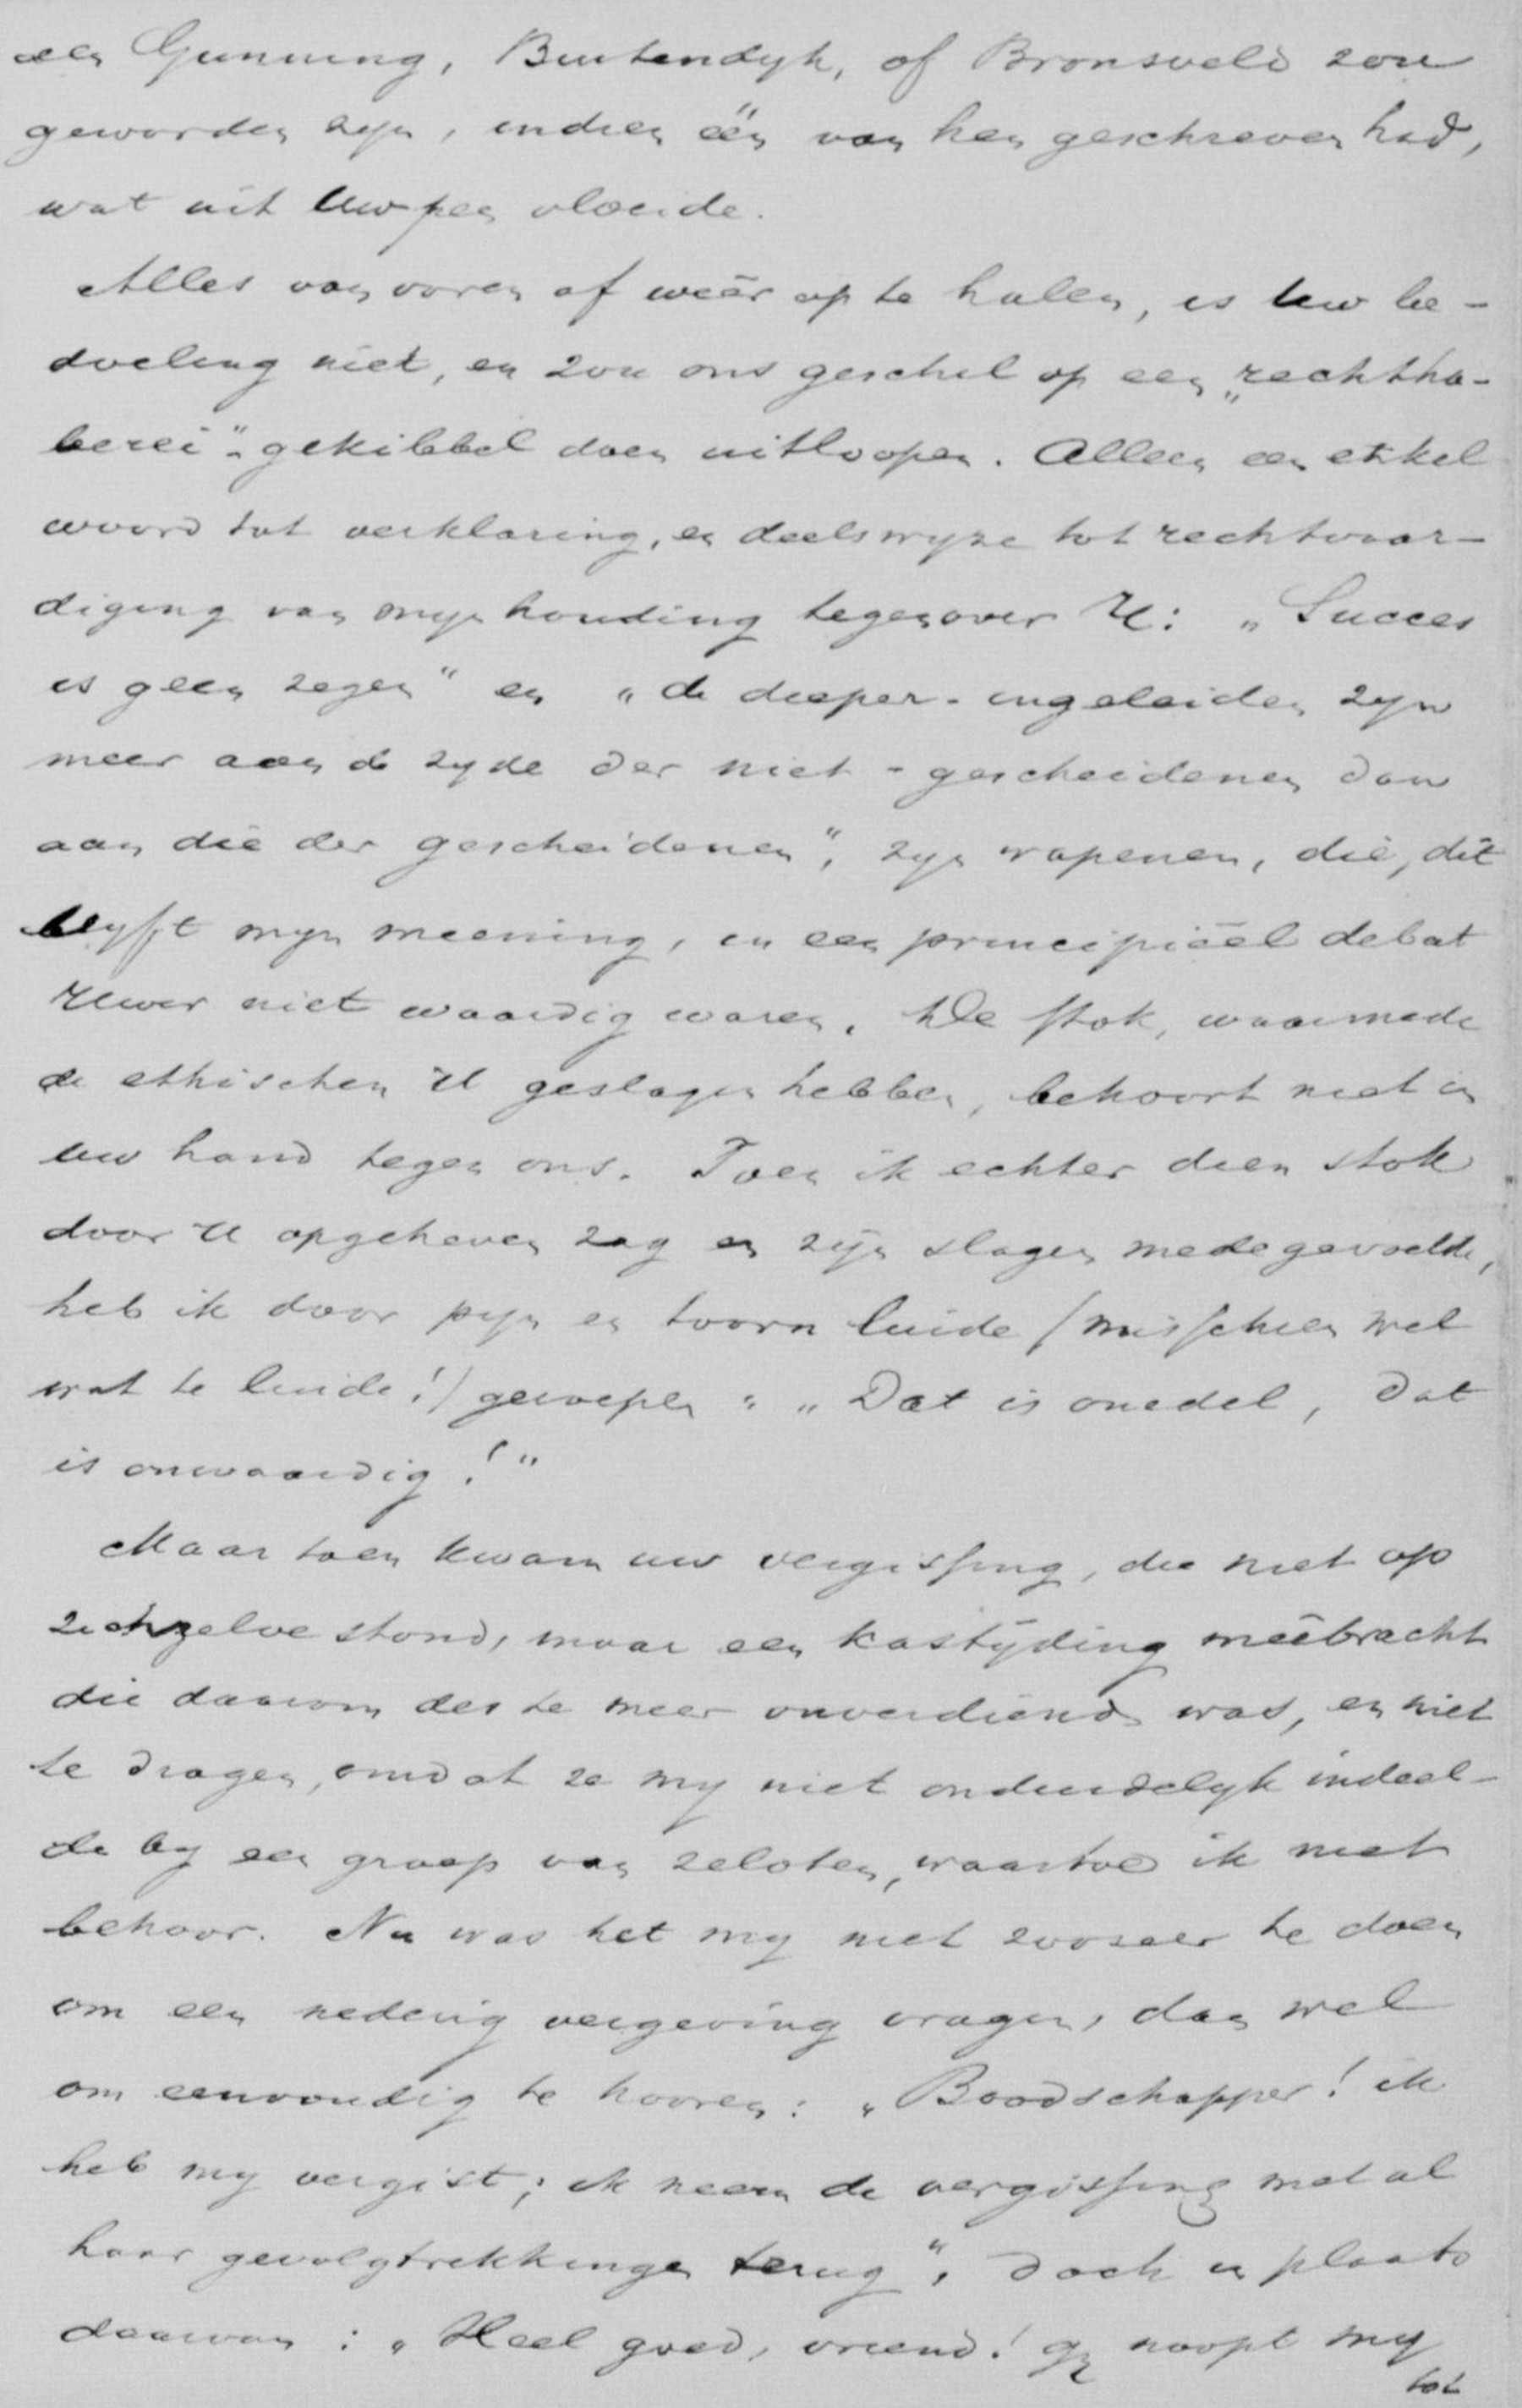 een Gunning, Buitendyk, of Bronsveld zou
geworden zyn, indien één van hen geschreven had,
wat uit Uw pen vloeide.
Alles van voren af weêr op te halen, is Uw be-
doeling niet, en zou ons geschil op een „rechtha-
berei"-gekibbel doen uitloopen. Alleen een enkel
woord tot verklaring, en deelswyze tot rechtvaar-
diging van myn houding tegenover U: „Succes
is geen zegen" en „de dieper-ingeleiden zyn
meer aan de zyde der niet-gescheidenen dan
aan die der gescheidenen", zyn wapenen, die, dit
blyft myn meening, in een principiëel debat
Uwer niet waardig waren. De stok, waarmede
de ethischen U geslagen hebben, behoort niet in
uw hand tegen ons. Toen ik echter dien stok
door U opgeheven zag en zijn slagen medegevoelde,
heb ik door pyn en toorn luide (misschien wel
wat te luide!) geroepen: „Dat is onedel, dat
is onwaardig!"
Maar toen kwam uw vergissing, die niet op
zichzelve stond, maar een kastijding meêbracht
die daarom des te meer onverdiend was, en niet
te dragen, omdat ze my niet onduidelyk indeel-
de by een groep van zeloten, waartoe ik niet
behoor. Nu was het my niet zoozeer te doen
om een nederig vergeving vragen, dan wel
om eenvoudig te hooren: „Boodschapper! ik
heb my vergist; ik neem de vergissing met al
haar gevolgtrekkingen terug", doch in plaats
daarvan: „Heel goed, vriend! gy noopt my
tot